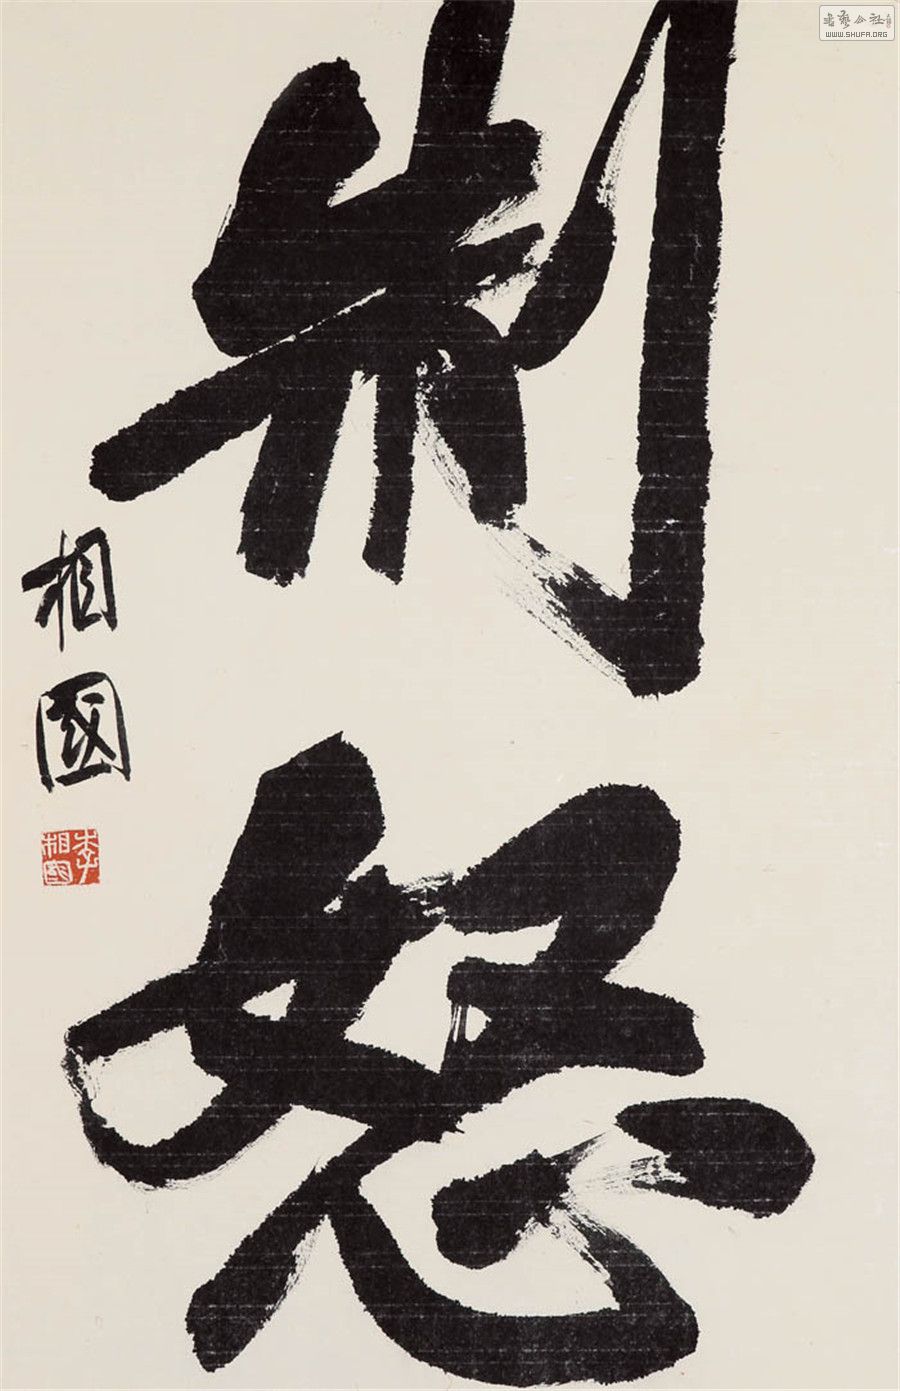 制怒
相國
李相國
書藝公社
WWW.SHUFA.ORG